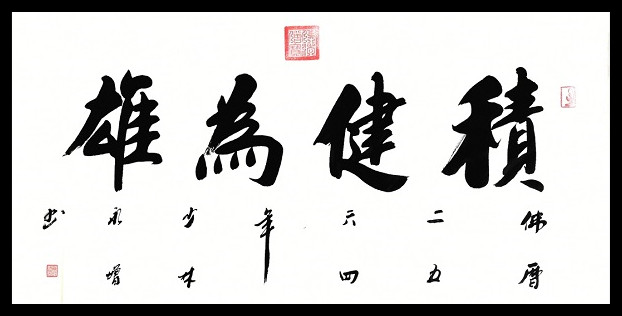 積健為雄
佛曆二五六四年少林永增書